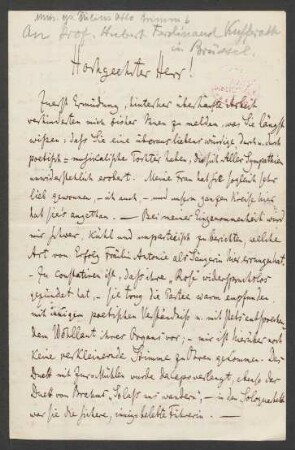 An Prof. Hubert Ferdinand Kufferath
in Brüssel.
Hochgeehrter Herr!
Zuerst Ermüdung, hinterher überhäufte Arbeit
verhinderten mich bisher Ihnen zu melden, was Sie längst
wissen: daß Sie eine überaus liebenswürdige durch u. durch
poetisch-musikalische Tochter haben, die sich Aller Sympathien
unwiderstehlich erobert. Meine Frau hat sie sogleich sehr
lieb gewonnen, – ich auch, – und unserm ganzen Kreise
hat sie's angethan. — Bei meiner Eingenommenheit wird
mir schwer, kühl und unparteiisch zu berichten, welche
Art von Erfolg Fräulein Antonie als Sängerin hier errungen hat.
– Zu constatiren ist, daß ihre „Rosa" widerspruchslos
gezündet hat, – sie sang die Partie warm empfunden,
mit innigem poetischen Verständniß u.
den Wohllaut ihrer Organs vor; – mir ist hierüber noch
keine verkleinernde Stimme zu Ohren gekommen. Das
Duett mit Zur Mühlen wurde da capo verlangt, ebenso das
Duett von Brahms „So laß uns wandern"; – in den Soloquartetten
war sie die sichere, innig belebte Führerin. —